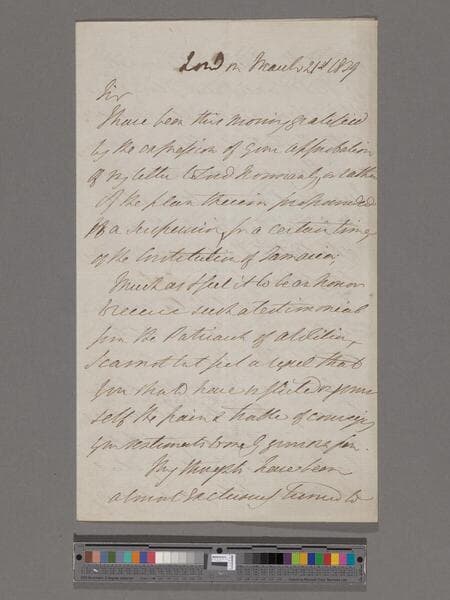 London March 21st 1839
Sir
I have been this morning gratified
by the expression of your approbation
of my letter to Lord Normanby or rather
of the plan therein propounded
of a suspension for a certain time
of the Constitution of Jamaica;
Much as I feel it to be an honor
to receive such a testimonial
from the Patriarch of abolition,
I cannot but feel a regret that
you should have inflicted on your
self the pain & trouble of conveying
your sentiments to me by your own pen.
My thoughts have been
almost exclusively turned to